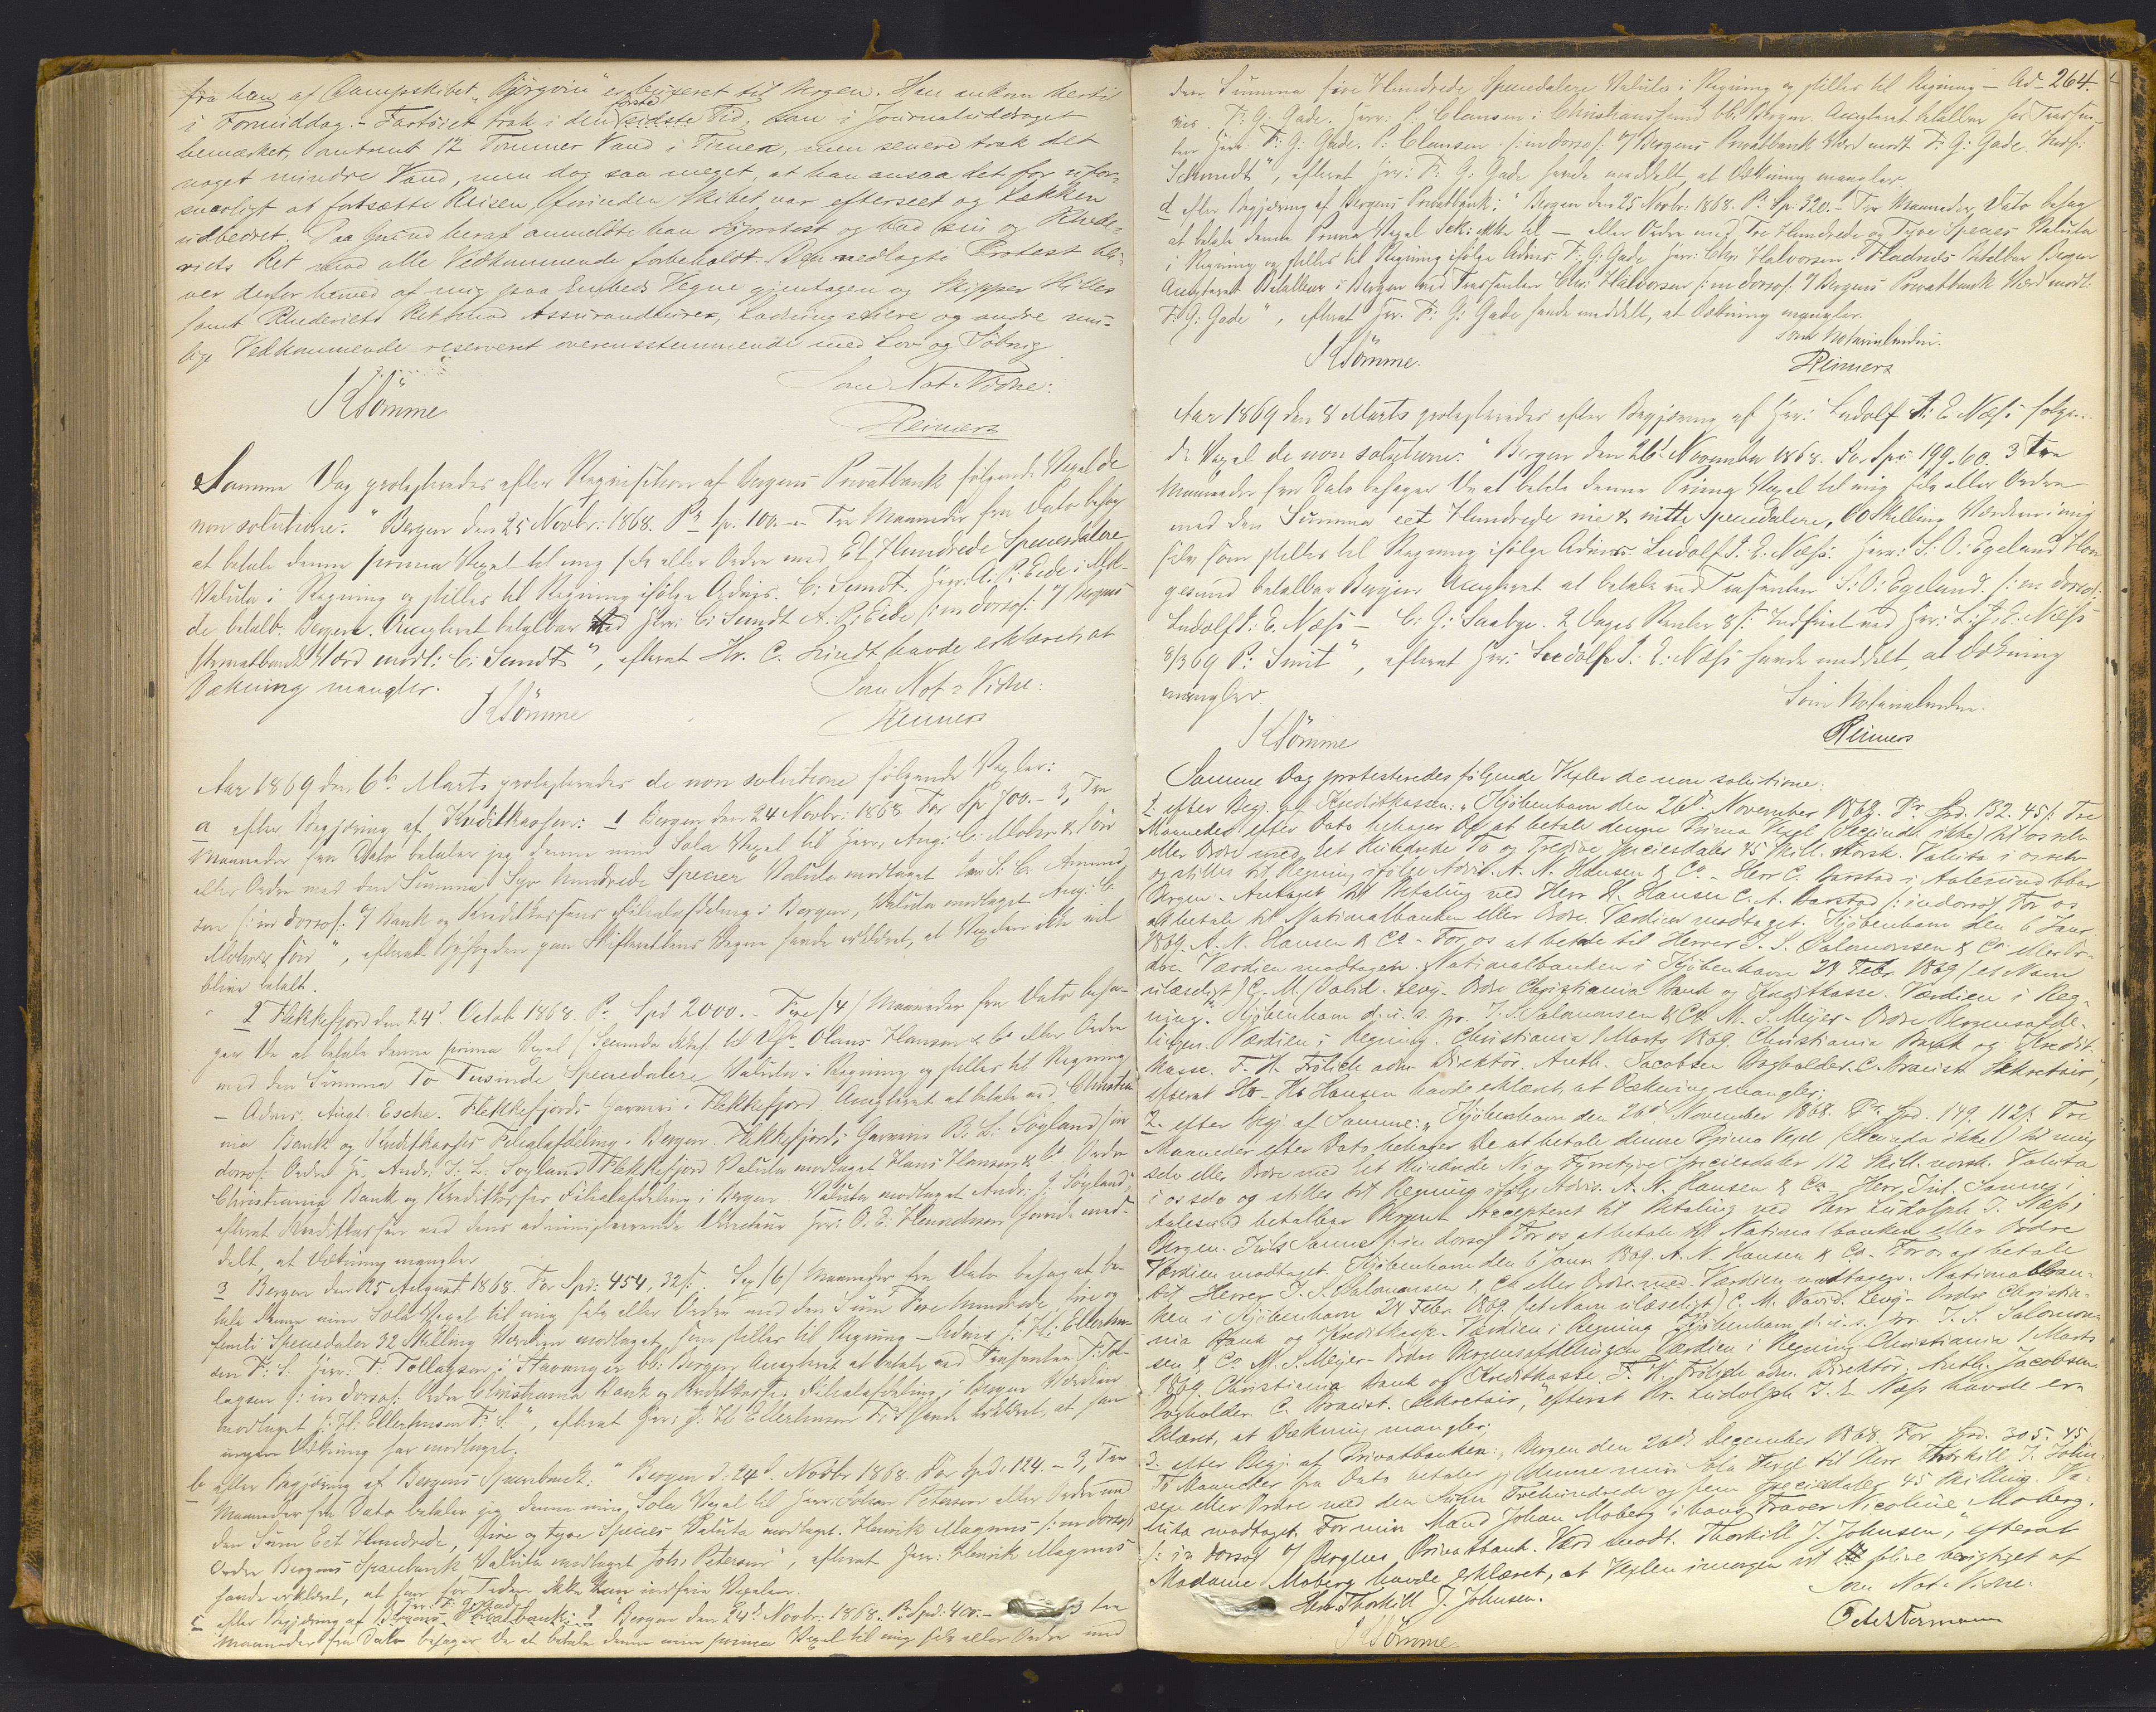 fra han af Dampskibet "Bjørgvin" er buxeret til Bergen. Han ankom hertil
i Formiddag. - Fartøiet trak i den første sidste Tid, som i Journaluddraget
bemærket, omtrent 12 Tommer Vand i Timen, men senere trak det
noget mindre Vand, men dog saa meget, at han ansaa det for ufor-
svarligt at fortsætte Reisen forinden Skibet var efterseet og Lækken
udbedret. Paa Grund heraf anmeldte han Søprotest og bad sin og Rhede-
riets Ret mod alle Vedkommende forbeholdt. Den nedlagte Protest bli-
ver derfor herved af mig paa Embeds Vegne gjentagen og Skipper
samt Rhederiets Ret mod Assurandeurer, Ladningseiere og andre mu-
lige Vedkommende reserveret overensstemmende med Lov og
KTømme
Som Not: Vidne:
Reimers
Samme Dag protesteredes efter Requisition af Bergens Privatbank følgende Vexel de
non solutione: "Bergen den 25 Novbr: 1868. Pr Sp. 100 - Tre Maaneder fra Dato behag
at betale denne prima Vexel til mig selv eller Ordre med Et Hundrede Speciesdalere
Valuta i Regning og stilles til Regning ifølge Advis. C: Sundt. Herr: A: P: Eide i Mol-
de betalb: Bergen. Accepteret betalbar ved Herr: C: Sundt A. P: Eide /: in dorso :/ Bergens
Privatbank Værd modt: C: Sundt", efterat Hr. C. Sundt havde erklæret, at
Dækning mangler.
KTømme
Som Not: Vidne:
Reimers
Aar 1869 den 6te Marts protesteredes de non solutione følgende Vexler:
a efter Begjæring af Kreditkassen: 1 Bergen den 24 Novbr: 1868. For Sp 700. - 3, Tre
Maaneder fra Dato betaler jeg denne min Sola Vexel til Herr: Aug: C: Mohr & Søn
eller Ordre med den Summa Syv Hundrede Species Valuta modtaget
sen /: in dorso :/ Bank og Kreditkassens Filialafdeling i Bergen, Valuta modtaget Aug: C:
Mohr & Søn", efterat Byfogden paa Skifterettens Vegne havde erklæret, at Vexlen ikke vil
blive betalt.
2 Flekkefjord den 24d Octob 1868. Pr Spd 2000. - Fire (4) Maaneder fra Dato beha-
ger De at betale denne prima Vexel til Olaus Hansen & Co eller Ordre
med den Summa To Tusinde Speciedalere Valuta i Regning og stilles til Regning
- Advis. Augt. Esche. Flekkefjords Garveri i Flekkefjord. Accepteret at betale ved Christia
nia Bank og Kreditkasses Filialafdeling i Bergen. Flekkefjords Garveri B. L: Søyland /: in
dorso :/ Ordre Hr. Andr: J: L: Søyland Flekkefjord Valuta modtaget Hans Hansen & Co Ordre
Christiania Bank og Kreditkasses Filialafdeling i Bergen. Valuta modtaget Andr: J. Søyland",
efterat Kreditkassen ved dens administrerende Directeur Herr: O. E: havde med-
delt, at Dækning mangler
3 Bergen den 25 August 1868. For Spd: 454, 32 s. Sex (6) Maaneder fra Dato behag at be-
tale denne min Sola Vexel til mig selv eller Ordre med den Sum Fire Hundrede, fire og
femti Speciedaler 32 Skilling Værdien modtaget som stilles til Regning - Advis J: H: Ellerhu-
sen F: S. Herr: T: Tollagsen i Stavanger bb: Bergen Accepteret at betale ved Trasenten T: Tol-
lagsen /: in dorso :/ Ordre Christiania Bank og Kreditkasses Filialafdeling i Bergen Værdien
modtaget J: H: Ellerhusen F: S:", efterat Herr: J: H: Ellerhusen F: S havde erklæret, at han
ingen Dækning har modtaget.
b efter Begjæring af Bergens Sparebank: "Bergen d. 24d. Novbr 1868. For Spd. 124. - 3, Tre
Maaneder fra Dato betaler jeg denne min Sola Vexel til Herr: Johan Petersen eller Ordre med
den Sum Eet Hundrede, fire og tyve Species Valuta modtaget. Henrik Magnus /: in dorso :/
Ordre Bergens Sparebank Valuta modtaget Johs Petersen", efterat Herr: Henrik Magnus
havde erklæret, at han for Tiden ikke kan indfrie Vexelen.
c efter Begjæring af Bergens Privatbank: 1 "Bergen den 24d Novbr: 1868. Pr Spd: 400. - 3 tre
Maaneder fra Dato behager De at betale denne min prima Vexel til mig selv eller Ordre med
264.
den Summa fire Hundrede Speciedalere Valuta i Regning og stilles til Regning - Ad-
vis. F: G: Gade. Herr: P: Clausen i Christianssund bb: Bergen. Accepteret betalbar hos Trassen-
ten Herr F: G: Gade. P: Clausen /: in dorso :/ Bergens Privatbank Værd modt F: G: Gade.
Schmidt", efterat Herr: F: G: Gade havde meddelt, at Dækning mangler.
d efter Begjæring af Bergens Privatbank: "Bergen den 25 Novbr: 1868. Pr Sp: 320. - Tre Maaneder Dato behag
at betale denne Prima Vexel Sek: ikke til - eller Ordre med Tre Hundrede og Tyve Species Valuta
i Regning og stilles til Regning ifølge Advis F: G: Gade Herr: Chr: Halvorsen Fladnæs Betalbar Bergen
Accepteret Betalbar i Bergen hos Trassenten Chr: Halvorsen /: in dorso :/ Bergens Privatbank Værd modt:
F: G: Gade", efterat Hr: F: G: Gade havde meddelt, at Dækning mangler.
KTømme.
Som Notarialvidne.
Reimers
Aar 1869 den 8 Marts protesteredes efter Begjæring af Herr: Ludolf J: E. Næss følgen-
de Vexel de non solutione: "Bergen den 26d November 1868. For Spd: 199. 60. 3 Tre
Maaneder fra Dato behager De at betale denne Prima Vexel til mig selv eller Ordre
med den Summa eet Hundrede nie & nitti Speciedalere, 60 Skilling Værdien i mig
selv som stilles til Regning ifølge Advis. Ludolf J: E: Næss. Herr: S: O: Egeland Hau
gesund betalbar Bergen Accepteret at betale ved Trasenten S: O: Egeland. /: in dorso :/
Ludolf J: E: Næss - C: G: Saabye. 2 Dages Renter 8 s: Indfriet ved Herr: L: J: E: Næss
8/3 69 P: Smit", efterat Herr: Ludolf J: E: Næss havde meddelt, at Dækning
mangler.
KTømme
Som Notarialvidne.
Reimers
Samme Dag protesteredes følgende Vexler de non solutione:
1. efter Begj. af Kreditkassen: "Kjøbenhavn den 26d November 1868. Pr Spd. 132. 45 s: Tre
Maaneder efter Dato behager De at betale denne Prima Vexel (Secunda ikke) til os selv
eller Ordre med Et Hundrede To og Tredive Speciesdaler 45 Skill. norsk. Valuta i os selv
og stilles til Regning ifølge Advis. A. N. Hansen & Co - Herr C. Aarstad i Aalesund bbar
Bergen - Antaget til Betaling ved Herr H. Hansen C. A. Aarstad /: in dorso :/ For os
at betale til Nationalbanken eller Ordre. Værdien modtaget. Kjøbenhavn den 6 Janr
1869. A. N. Hansen & Co - For os at betale til Herrer J. S. Salomonsen & Co eller Or-
dre. Værdien modtagen. Nationalbanken i Kjøbenhavn 24 Febr. 1869 (et Navn
ulæseligt) C. M. David. Levy - Ordre Christiania Bank og Kreditkasse. Værdien i Reg-
ning. Kjøbenhavn d. u. s. pr. J. S. Salomonsen & Co. M. S. Meyer - Ordre Bergensafde-
lingen. Værdien i Regning. Christiania 1 Marts 1869. Christiania Bank og Kredit-
kasse. F. H. Frølich adm. Direktør. Anth. Jacobsen Bogholder. C. Sekretair,"
efterat Hr. H. Hansen havde erklæret, at Dækning mangler;
2. efter Begj. af Samme: "Kjøbenhavn den 26d November 1868. Pr Spd. 149. 112 s. Tre
Maaneder efter Dato behager De at betale denne Prima Vexel (Secunda ikke) til mig
selv eller Ordre med Et Hundrede Ni og Fyrretyve Speciesdaler 112 Skill. norsk. Valuta
i os selv og stilles til Regning ifølge Advis. A. N. Hansen & Co - Herr Jul. Sannes i
Aalesund betalbar Bergen. Accepteret til Betaling ved Herr Ludolph J. Næss i
Bergen. Juls Sannes /: in dorso :/ For os at betale til Nationalbanken eller Ordre
Værdien modtaget. Kjøbenhavn den 6 Janr 1869. A. N. Hansen & Co. For os at betale
til Herrer J. S. Salomonsen & Co eller Ordre med. Værdien modtagen. Nationalban-
ken i Kjøbenhavn 24 Febr. 1869. (et Navn ulæseligt) C. M. David. Levy - Ordre Christia-
nia Bank og Kreditkasse. Værdien i Regning Kjøbenhavn d. u. s. pr. J. S. Salomon-
sen & Co M. S. Meyer - Ordre Bergensafdelingen Værdien i Regning Christiania 1 Marts
1869. Christiania Bank og Kreditkasse. F. H. Frølich adm. Direktør. Anth. Jacobsen
Bogholder. C. Sekretair," efterat Hr. Ludolph J. E. Næss havde er-
klæret, at Dækning mangler;
3. efter Begj. af Privatbanken: "Bergen den 26d December 1868. For Spd. 305. 45
To Maaneder fra Dato betaler jeg denne min Sola Vexel til Herr Thorkill J. John-
sen eller Ordre med den Sum Trehundrede og fem Speciesdaler 45 Skilling. Va-
luta modtaget. For min Mand Johan Moberg i hans Fravær Nicoline Moberg.
/: in dorso :/ Bergens Privatbank. Værd modt. Thorkill J. Johnsen," efterat
Madame Moberg havde erklæret, at Vexlen imorgen vil blive berigtiget af
Herr Thorkill J. Johnsen.
KTømme
Som Not: Vidne.